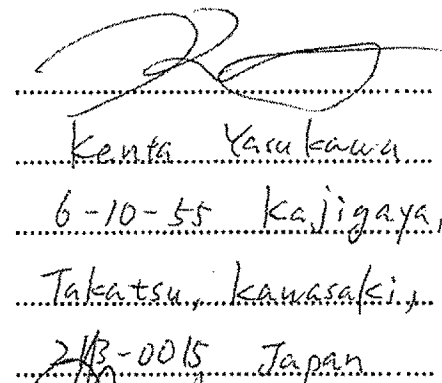 Kenta Yasukawa
6-10-55 Kajigaya,
Takatsu, Kawasaki,
213-0015 Japan